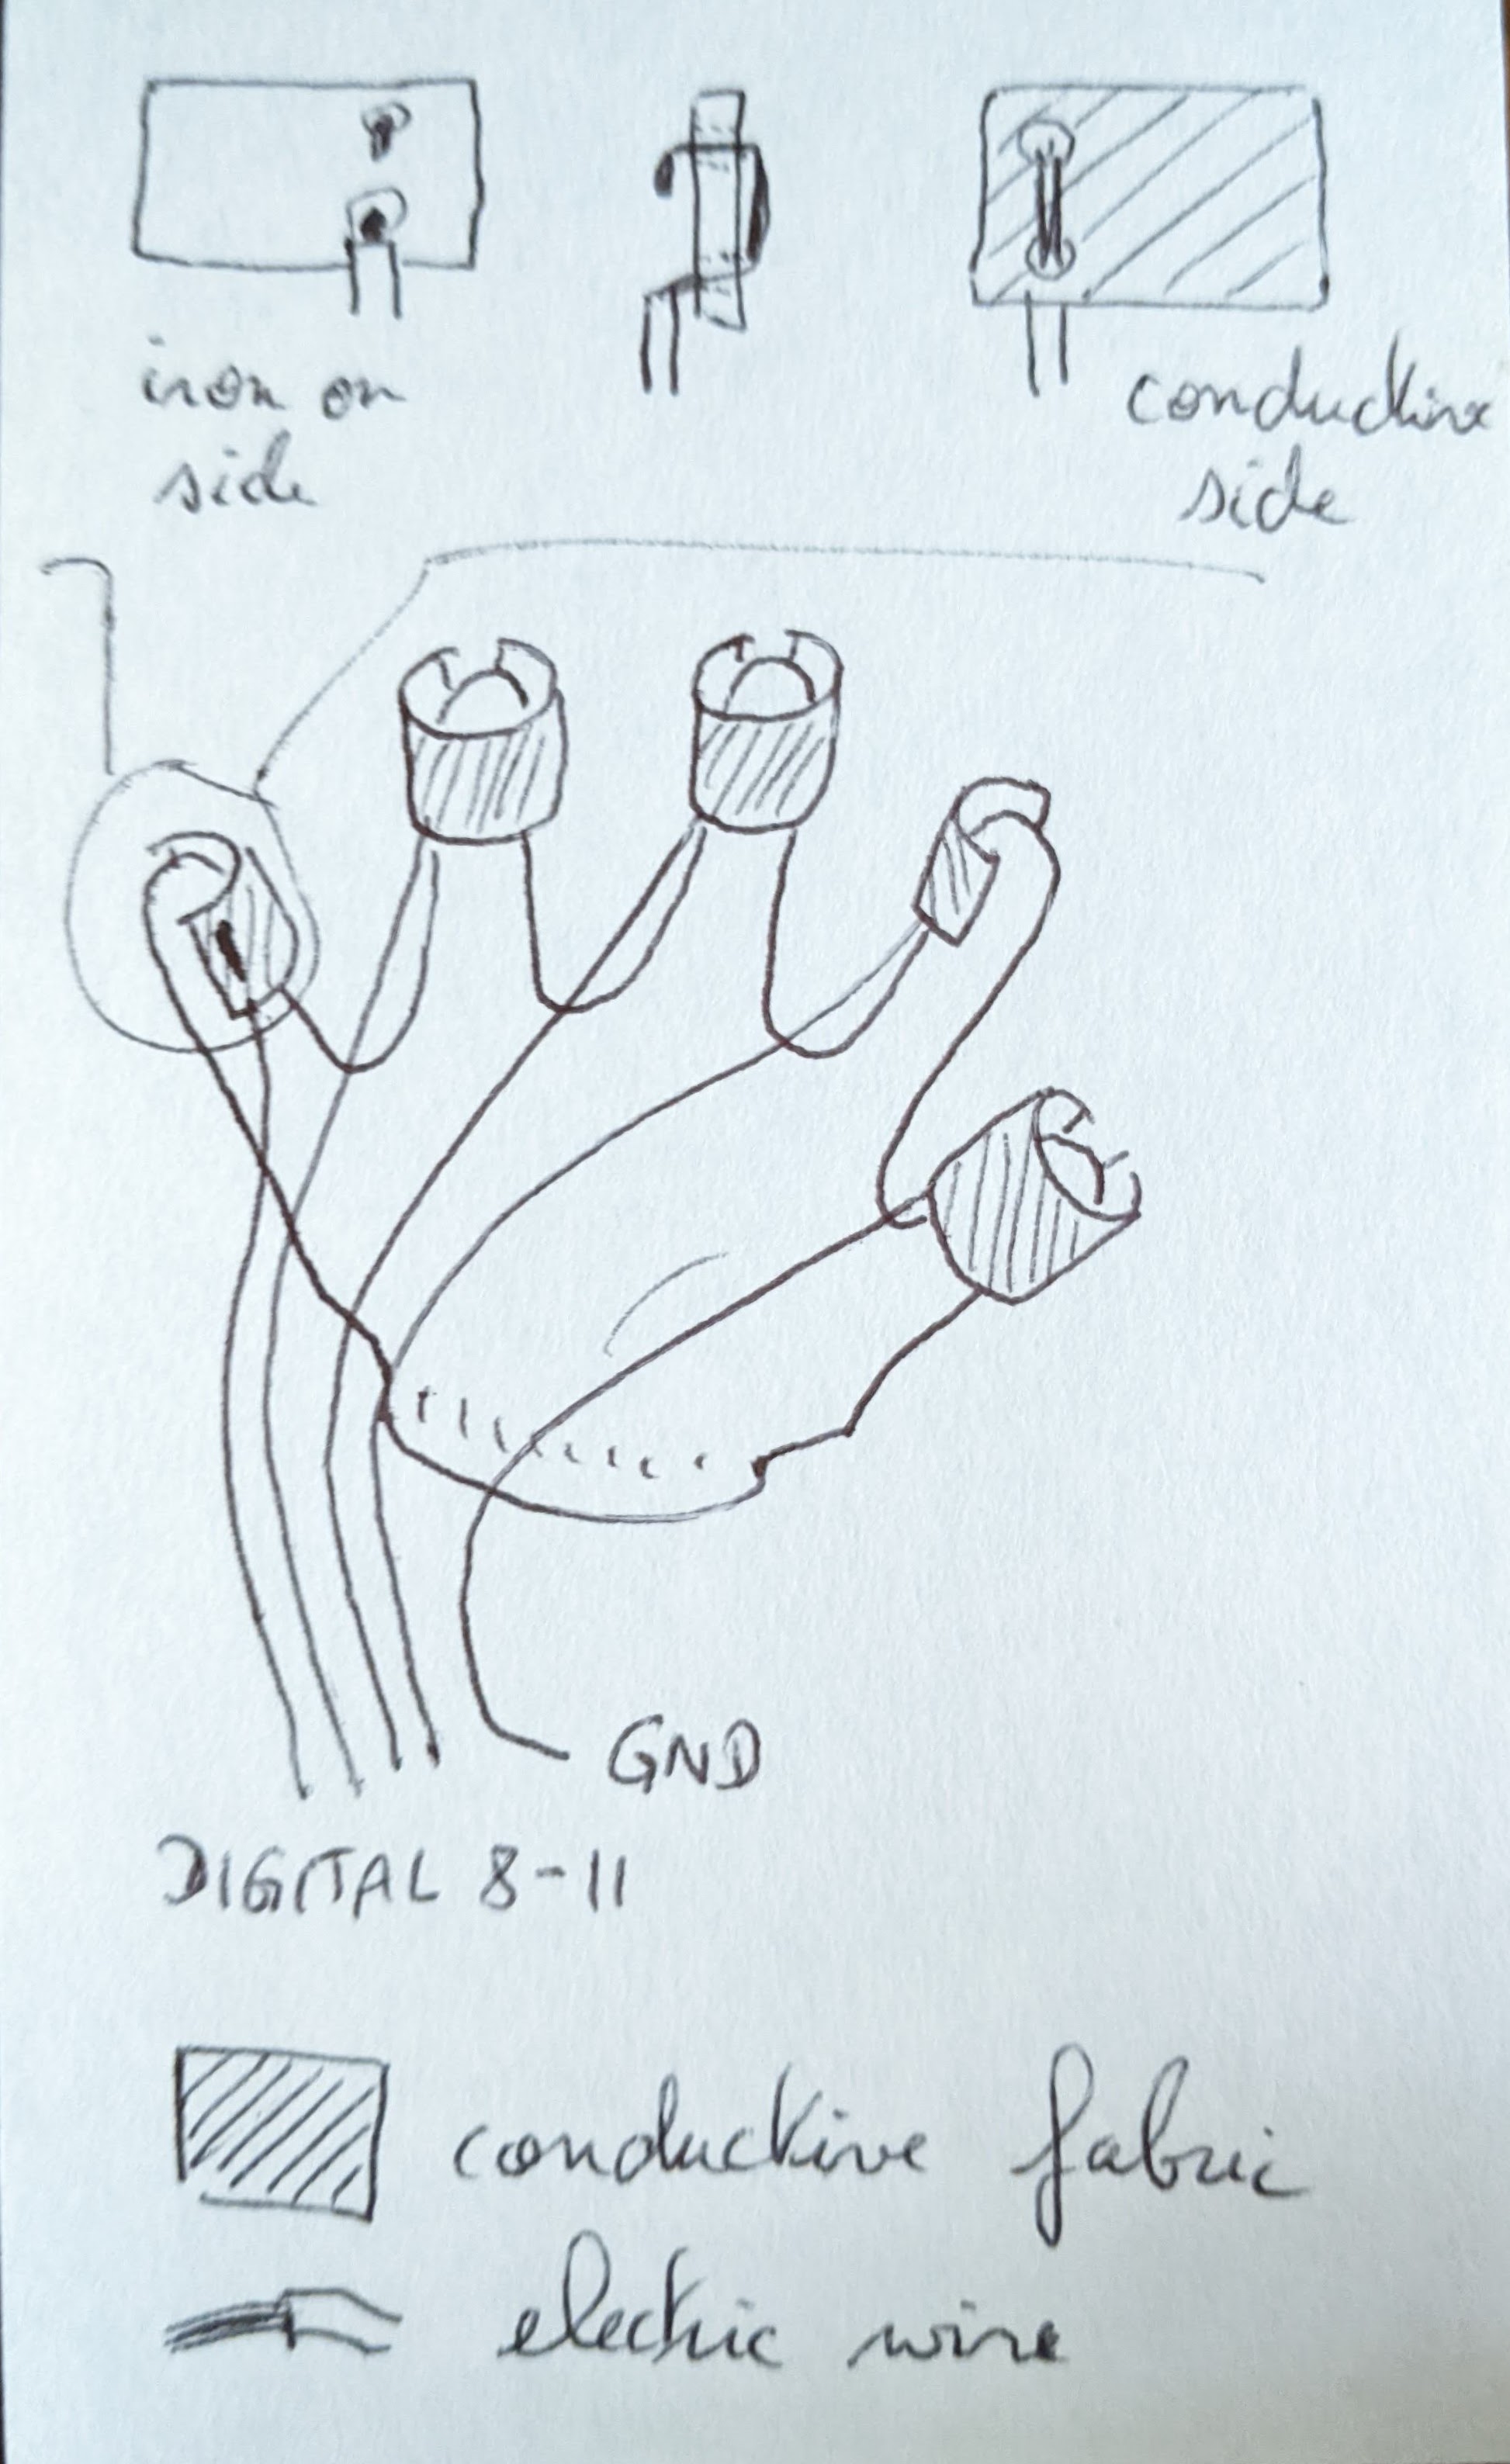 iron on
side
conductive
side
GND
DIGITAL 8-11
conductive fabric
electric wire